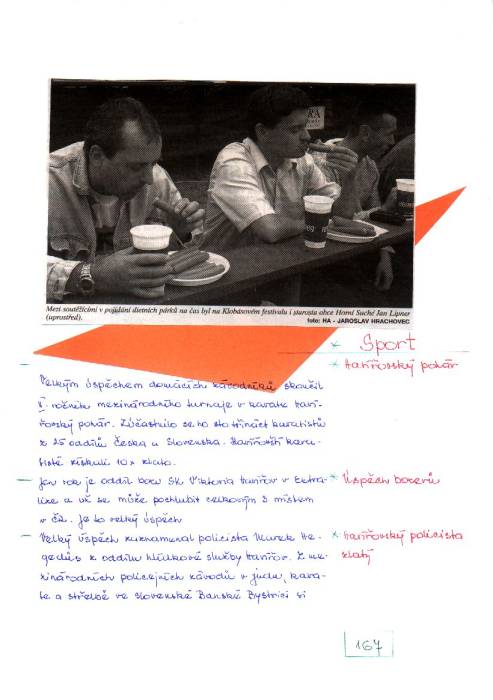 Mezi soutěžícími v pojídání dietních párků na čas byl na Klobásovém festivalu i starosta obce Horní Suché Jan Lipner
(uprostřed).
foto: HA - JAROSLAV HRACHOVEC
* Sport
* Havířovský pohár
Velkým úspěchem domácích závodníků skončil
V. ročník mezinárodního turnaje v karate Haví-
řovský pohár. Zúčastnilo se ho sto třináct karatistů
z 25 oddílů Česka a Slovenska. Havířovští kara-
tisté získali 10x zlato.
Jen rok je oddíl boxu SK Viktoria Havířov v Extra-
lize a už se může pochlubit celkovým 3 místem
v ČR. Je to velký úspěch
* Úspěch boxerů
Velký úspěch zaznamenal policista Marek He-
gedüs z oddílu hlídkové služby Havířov. Z me-
zinárodních policejních závodů v judu, kara-
te a střelbě ve slovenské Banské Bystrici si
* Havířovský policista
zlatý
167